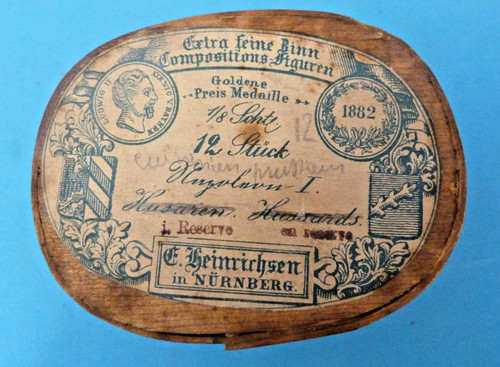 Extra feine Zinn
Compositions-Figuren
LUDWIG II KOENIG V. BAYERN
Goldene
Preis Medaille
1882
1/8 Schtz
12
12 Stück
cuirassiers prussiens
Napoleon I.
Husaren. Hussards.
i. Reserve en reserve
E. Heinrichsen
in NÜRNBERG.